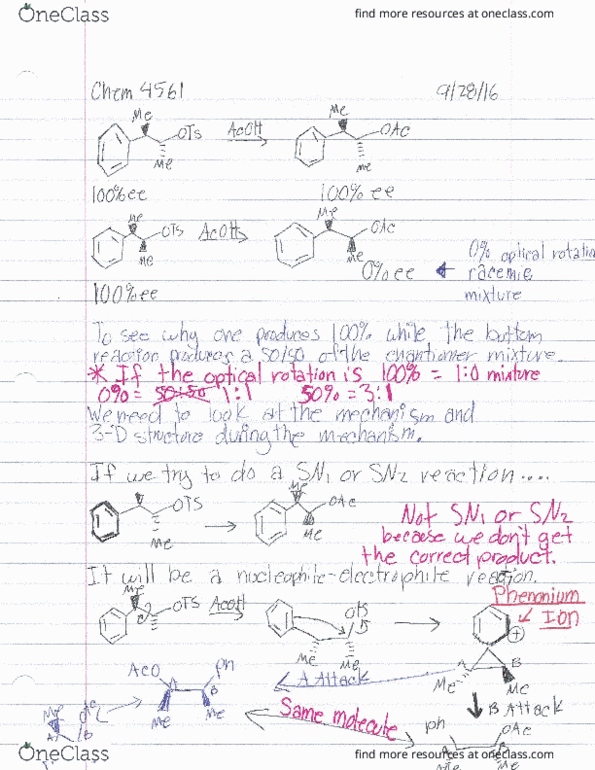 OneClass
find more resources at oneclass.com
Chem 4561
9/28/16
Me
OTs
AcOH
Me
OAc
Me
Me
100%ee
100%ee
Me
OTS
AcOH
Me
OAc
Me
Me
0%ee
0% optical rotation
racemic
mixture
100%ee
To see why one produces 100% while the bottom
reaction produces a 50/50 of the enantiomer mixture.
* If the optical rotation is 100% = 1:0 mixture
0% = 50:50 1:1 50% = 3:1
We need to look at the mechanism and
3-D structure during the mechanism.
If we try to do a SN1 or SN2 reaction....
OTS
Me
Me
OAc
Me
Not SN1 or SN2
because we don't get
the correct product.
It will be a nucleophile-electrophile reaction.
Me
OTS
AcOH
OTS
Me
Me
Phenonium
Ion
+
A
B
Me
Me
AcO
Ph
A
B
Me
Me
A Attack
B Attack
Same molecule
Me
OAc
A
B
Ph
OAc
OneClass
find more resources at oneclass.com